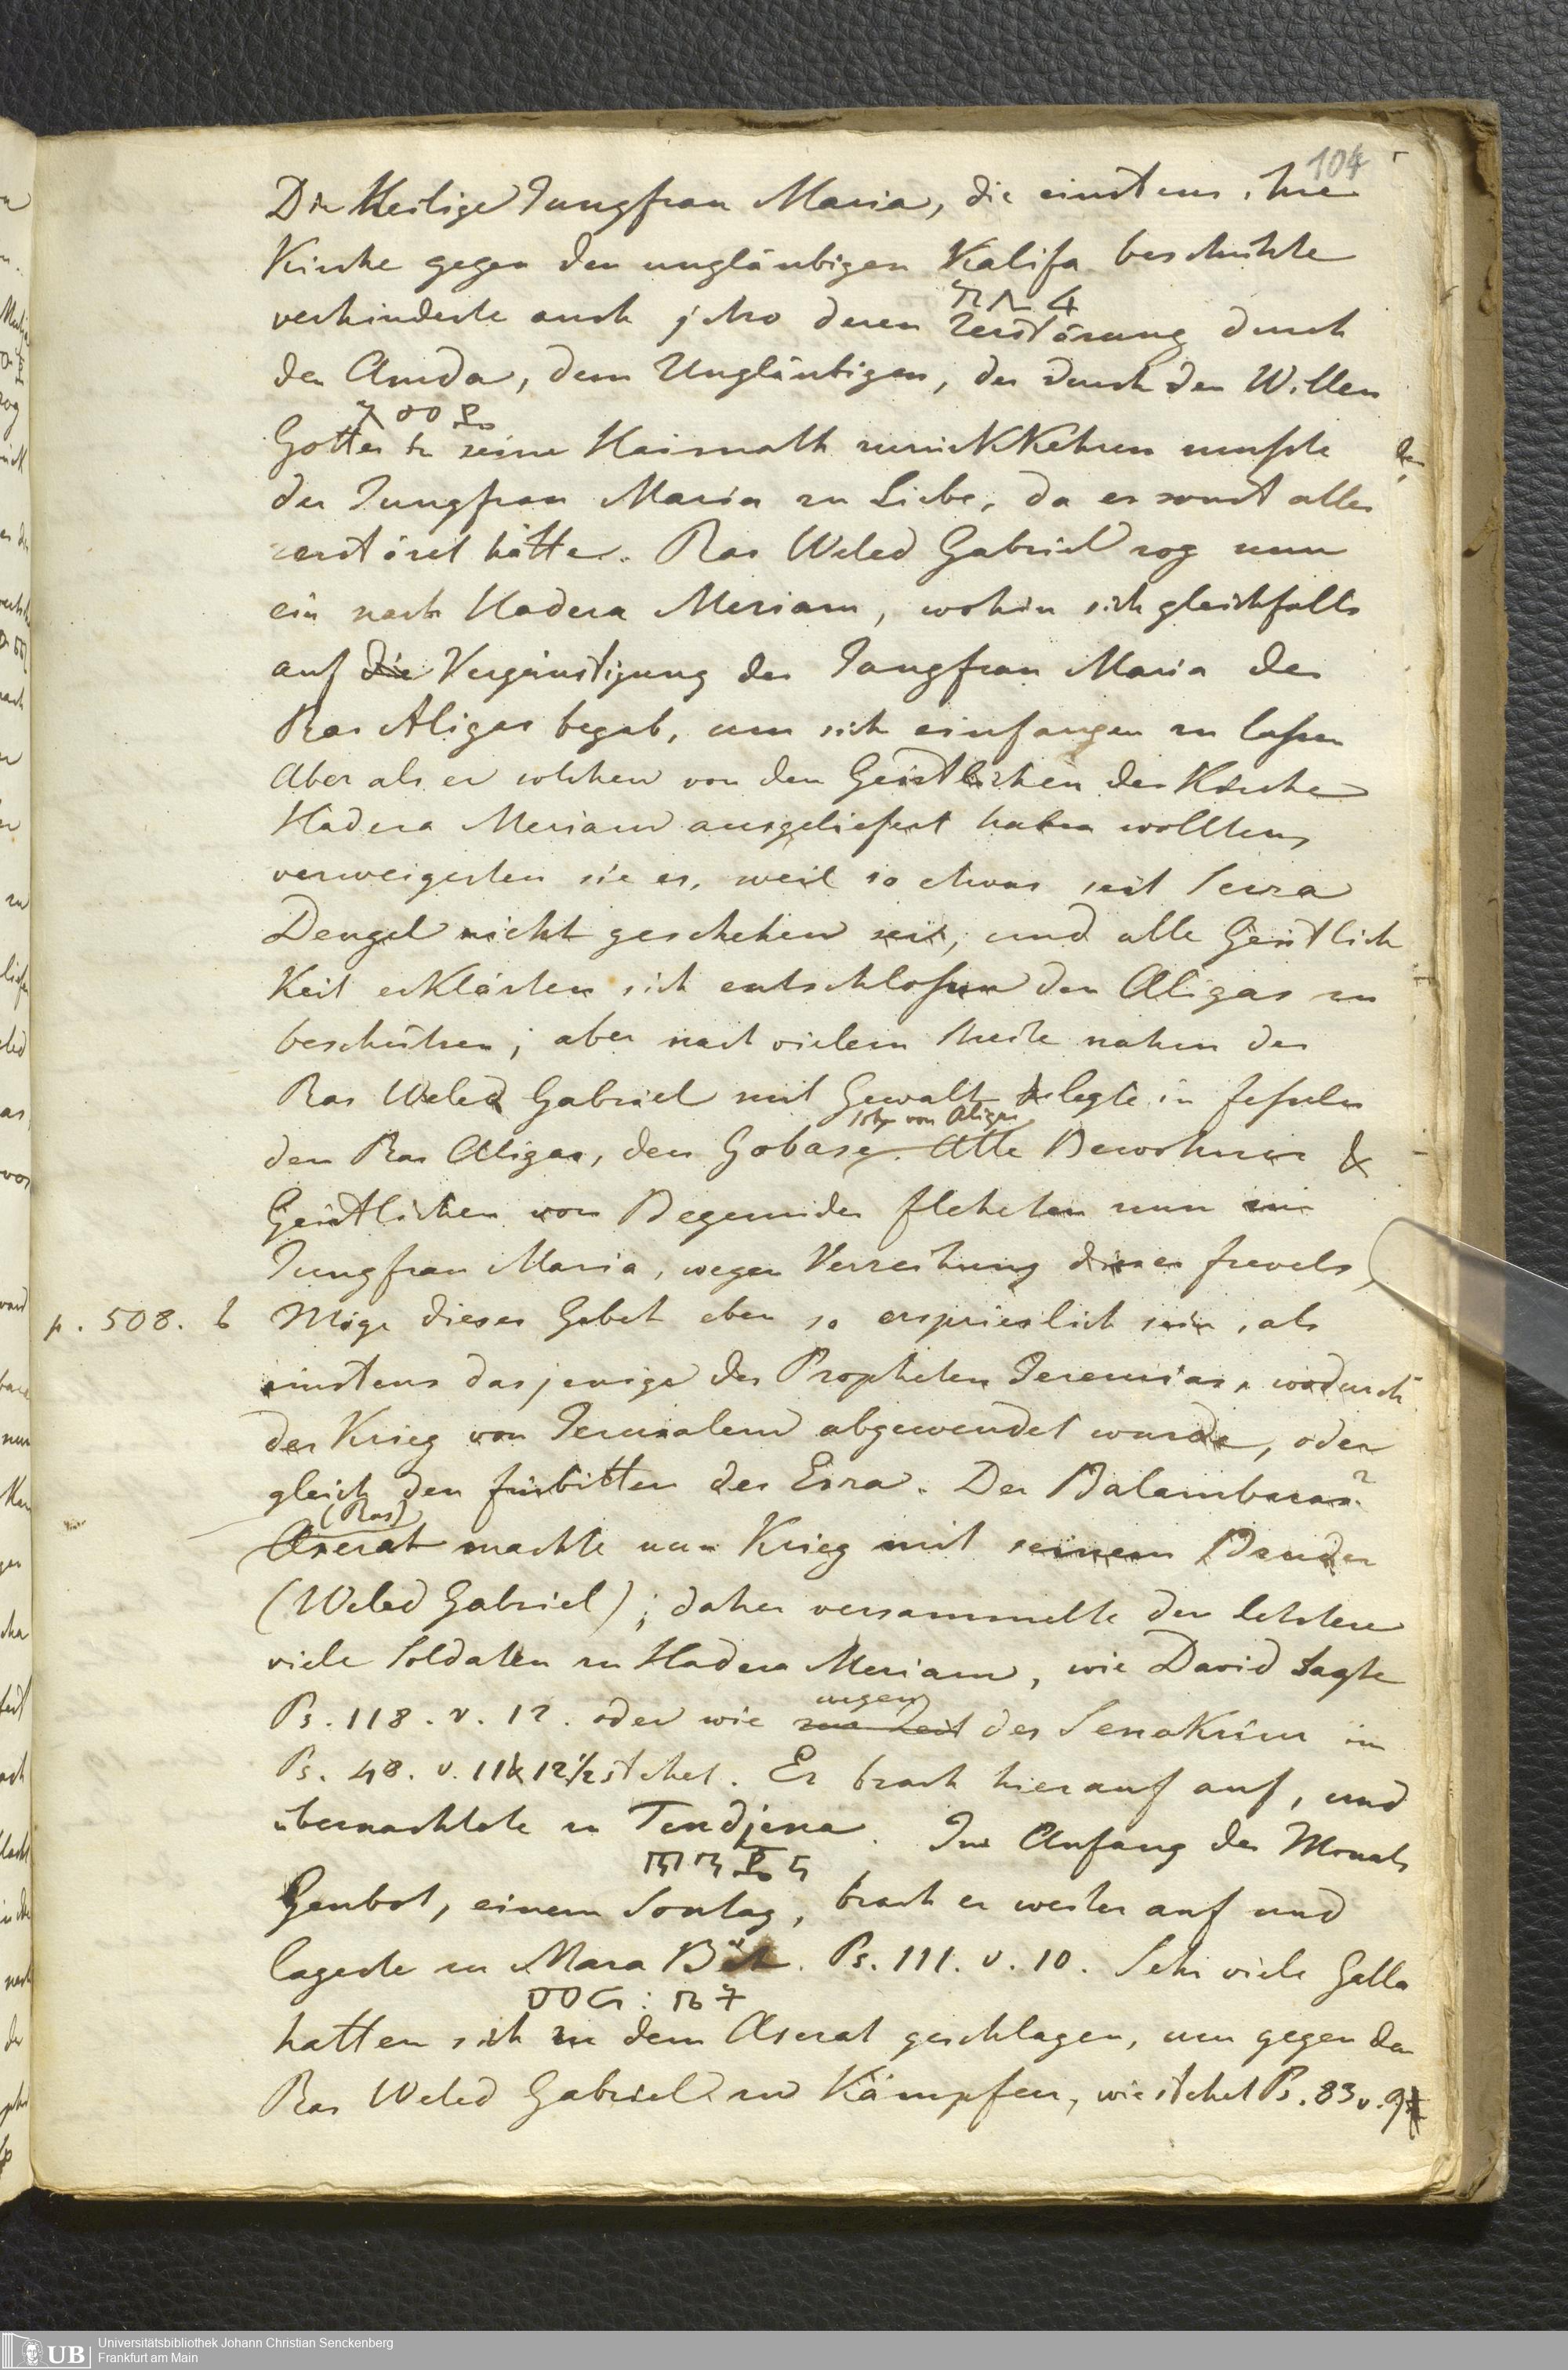 104
Die Heilige Jungfrau Maria, die einstens ihre
Kirche gegen den ungläubigen Kalifa beschützte
verhinderte auch jetzo deren Zerstörung durch
den Amda, dem Ungläubigen, der durch den Willen
Gottes in seine Haimath zurückkehren mufste
der Jungfrau Maria zu Liebe, da er sonst alles
zerstöret hätte. Ras Weled Gabriel zog nun
ein nach Hadera Meriam, wohin sich gleichfalls
auf die Vergünstigung der Jungfrau Maria der
Ras Aligas begab, um sich einfangen zu lafsen
Aber als er solchen von den Geistlichen der Kirche
Hadera Meriam ausgeliefert haben wollten,
verweigerten sie es, weil so etwas seit Serza
Dengel nicht geschehen sei, und alle Geistlich
keit erklärten sich entschlofsen den Aligas zu
beschützen; aber nach vielem Streite nahm der
Ras Weled Gabriel mit Gewalt & legte in Fefseln
Sohn von Aligas
den Ras Aligas, den Gobase. Alle Bewohner &
Geistlichen von Begemider fleheten nun die
Jungfrau Maria, wegen Verzeihung dieses Frevels,
p. 508. b Möge dieses Gebet eben so ersprieslich sein, als
einstens dasjenige des Propheten Jeremias, wodurch
der Krieg von Jerusalem abgewendet wurde, oder
gleich den Fürbitten des Esra. Der Balambaras
(Ras)
Aserat machte nun Krieg mit seinem Bruder
(Weled Gabriel); daher versammelte der letztere
viele Soldaten zu Hadera Meriam, wie David sagte
wegen
Ps. 118. v. 12. oder wie zur Zeit des Senakrim im
Ps. 48. v. 11 & 12 1/2 stehet. Er brach hierauf auf, und
übernachtete zu Tendjena. Im Anfang des Monats
Genbot, einem Sontag, brach er weiter auf und
lagerte zu Mara Bêt. Ps. 111. v. 10. Sehr viele Galla
መር፡ ቤት
hatten sich zu dem Aserat geschlagen, um gegen den
Ras Weled Gabriel zu kämpfen, wie stehet Ps. 83 v. 9
Universitätsbibliothek Johann Christian Senckenberg
UB Frankfurt am Main